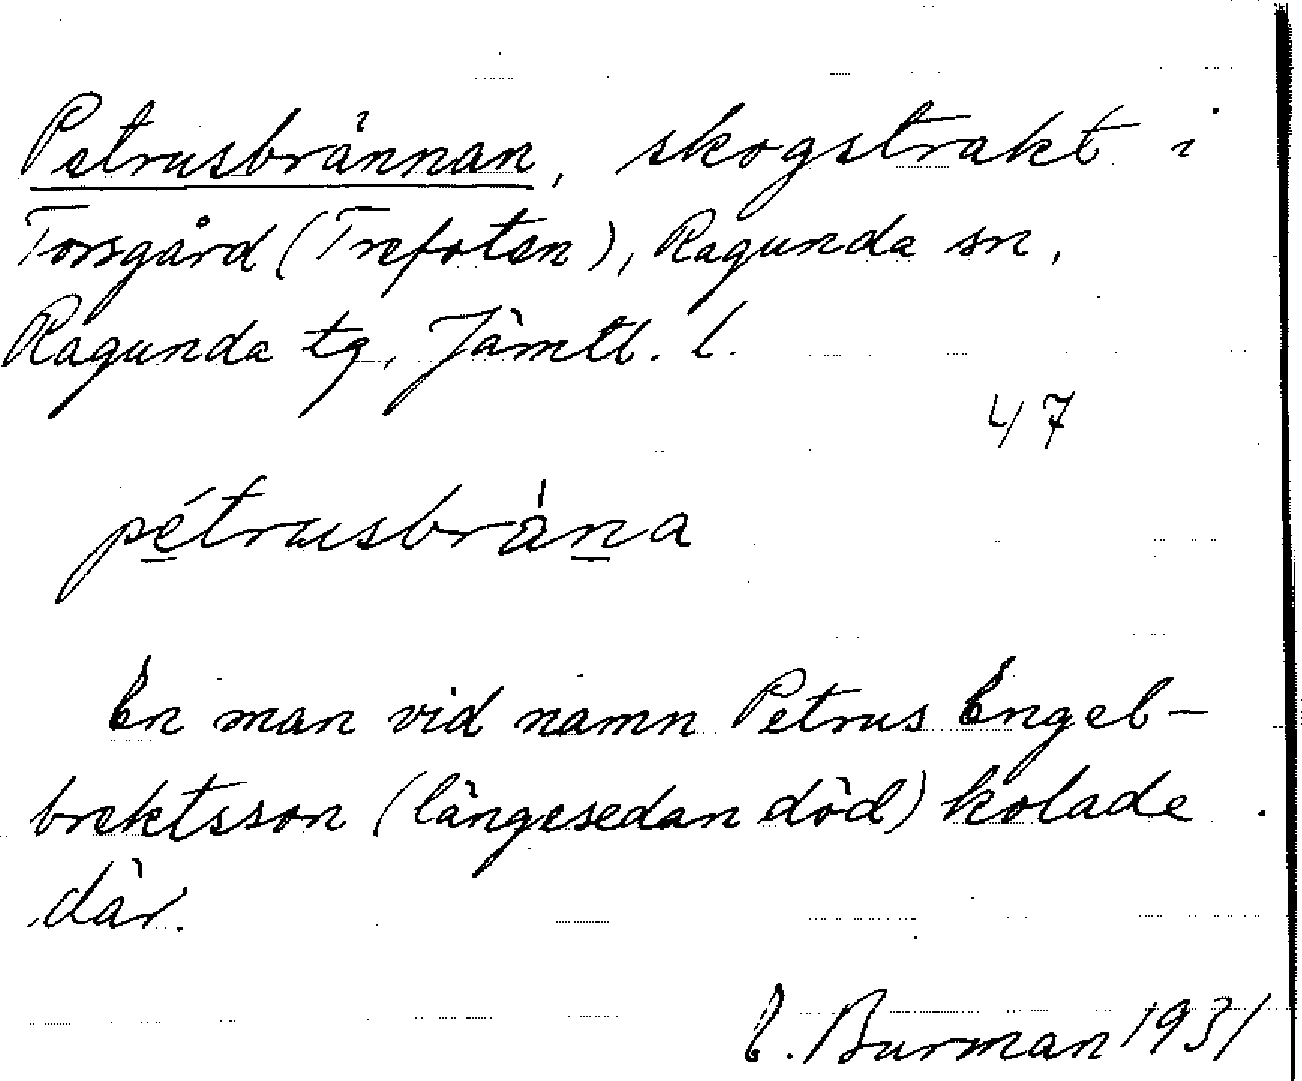 Petrusbrännan, skogstrakt i
Torsgård (Trefoten), Ragunda sn,
Ragunda tg, Jämtl. l.
47
pétrusbrä́na
En man vid namn Petrus Engel-
brektsson (längesedan död) kolade
där.
E. Burman 1931